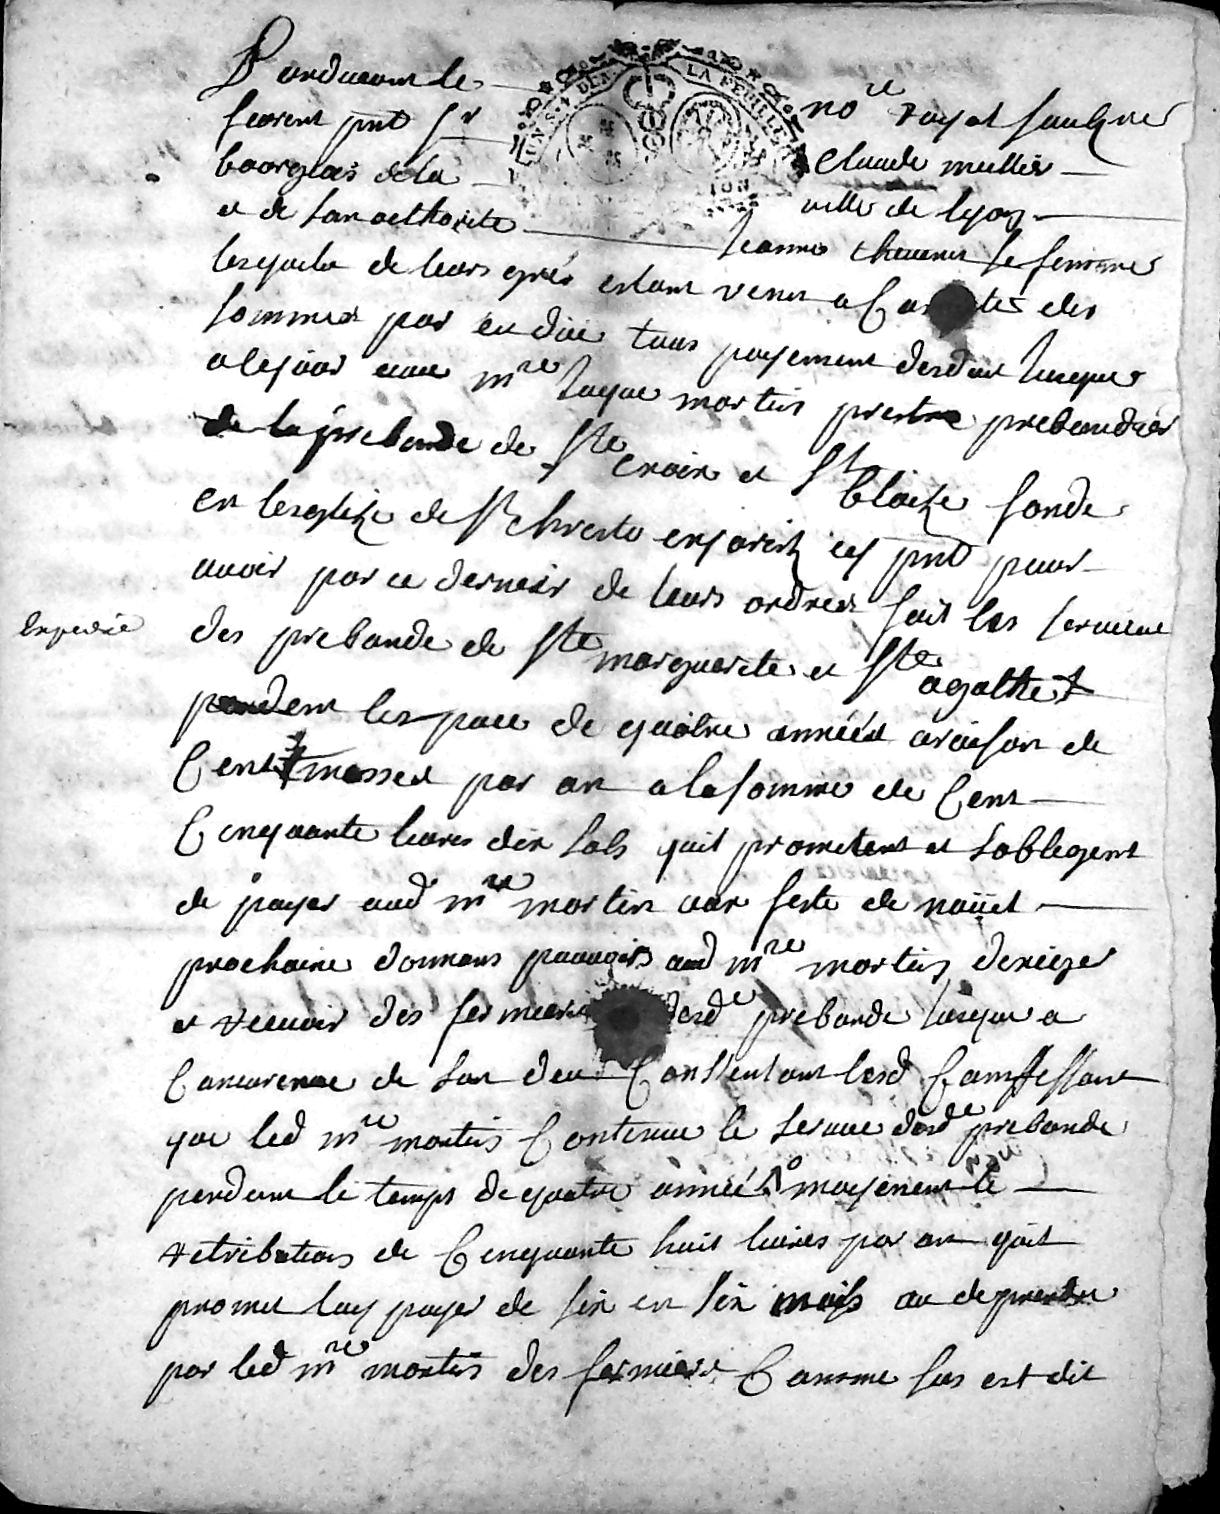 Pardevant le no.re royal soubsne
furent pnt Sr Claude mullier
bourgeois de la ville de lyon
et de son authorite Jeanne sa femme
lesquels de leurs grés estant venus a Compte des
sommes par eu due tous payement desduit jusques
a cejour avec mre Jaque martin prestre prebandier
de la prebande de Ste croix et St blaize fondé
en lesglize de St christo enjarest cy pnt pour
avoir par ce dernier de leurs ordres fait les service
Expedié
des prebande de Ste marguerite et Ste agathe
pendent lespace de quatre années araison de
Cent messes par an a la somme de Cent
Cinquante livres dix sols quil prometent et soblegent
de payer aud mre martin aux feste de noüel
prochaine donnans pouvoir aud mre martin dexiger
et recevoir des fermiers desde prebande jusque a
Concurence de son deu Consentant lesd Confessant
que led mre martin Contenue le service desde prebande
pendant le temps de quatre année moyenent le
retribution de Cinquante huit livres par an quil
promet luy payer de six en six mois ou de prendre
par led mre martin des fermiers Comme sus est dit
UN S. 4 DEN. LA FEUILLE